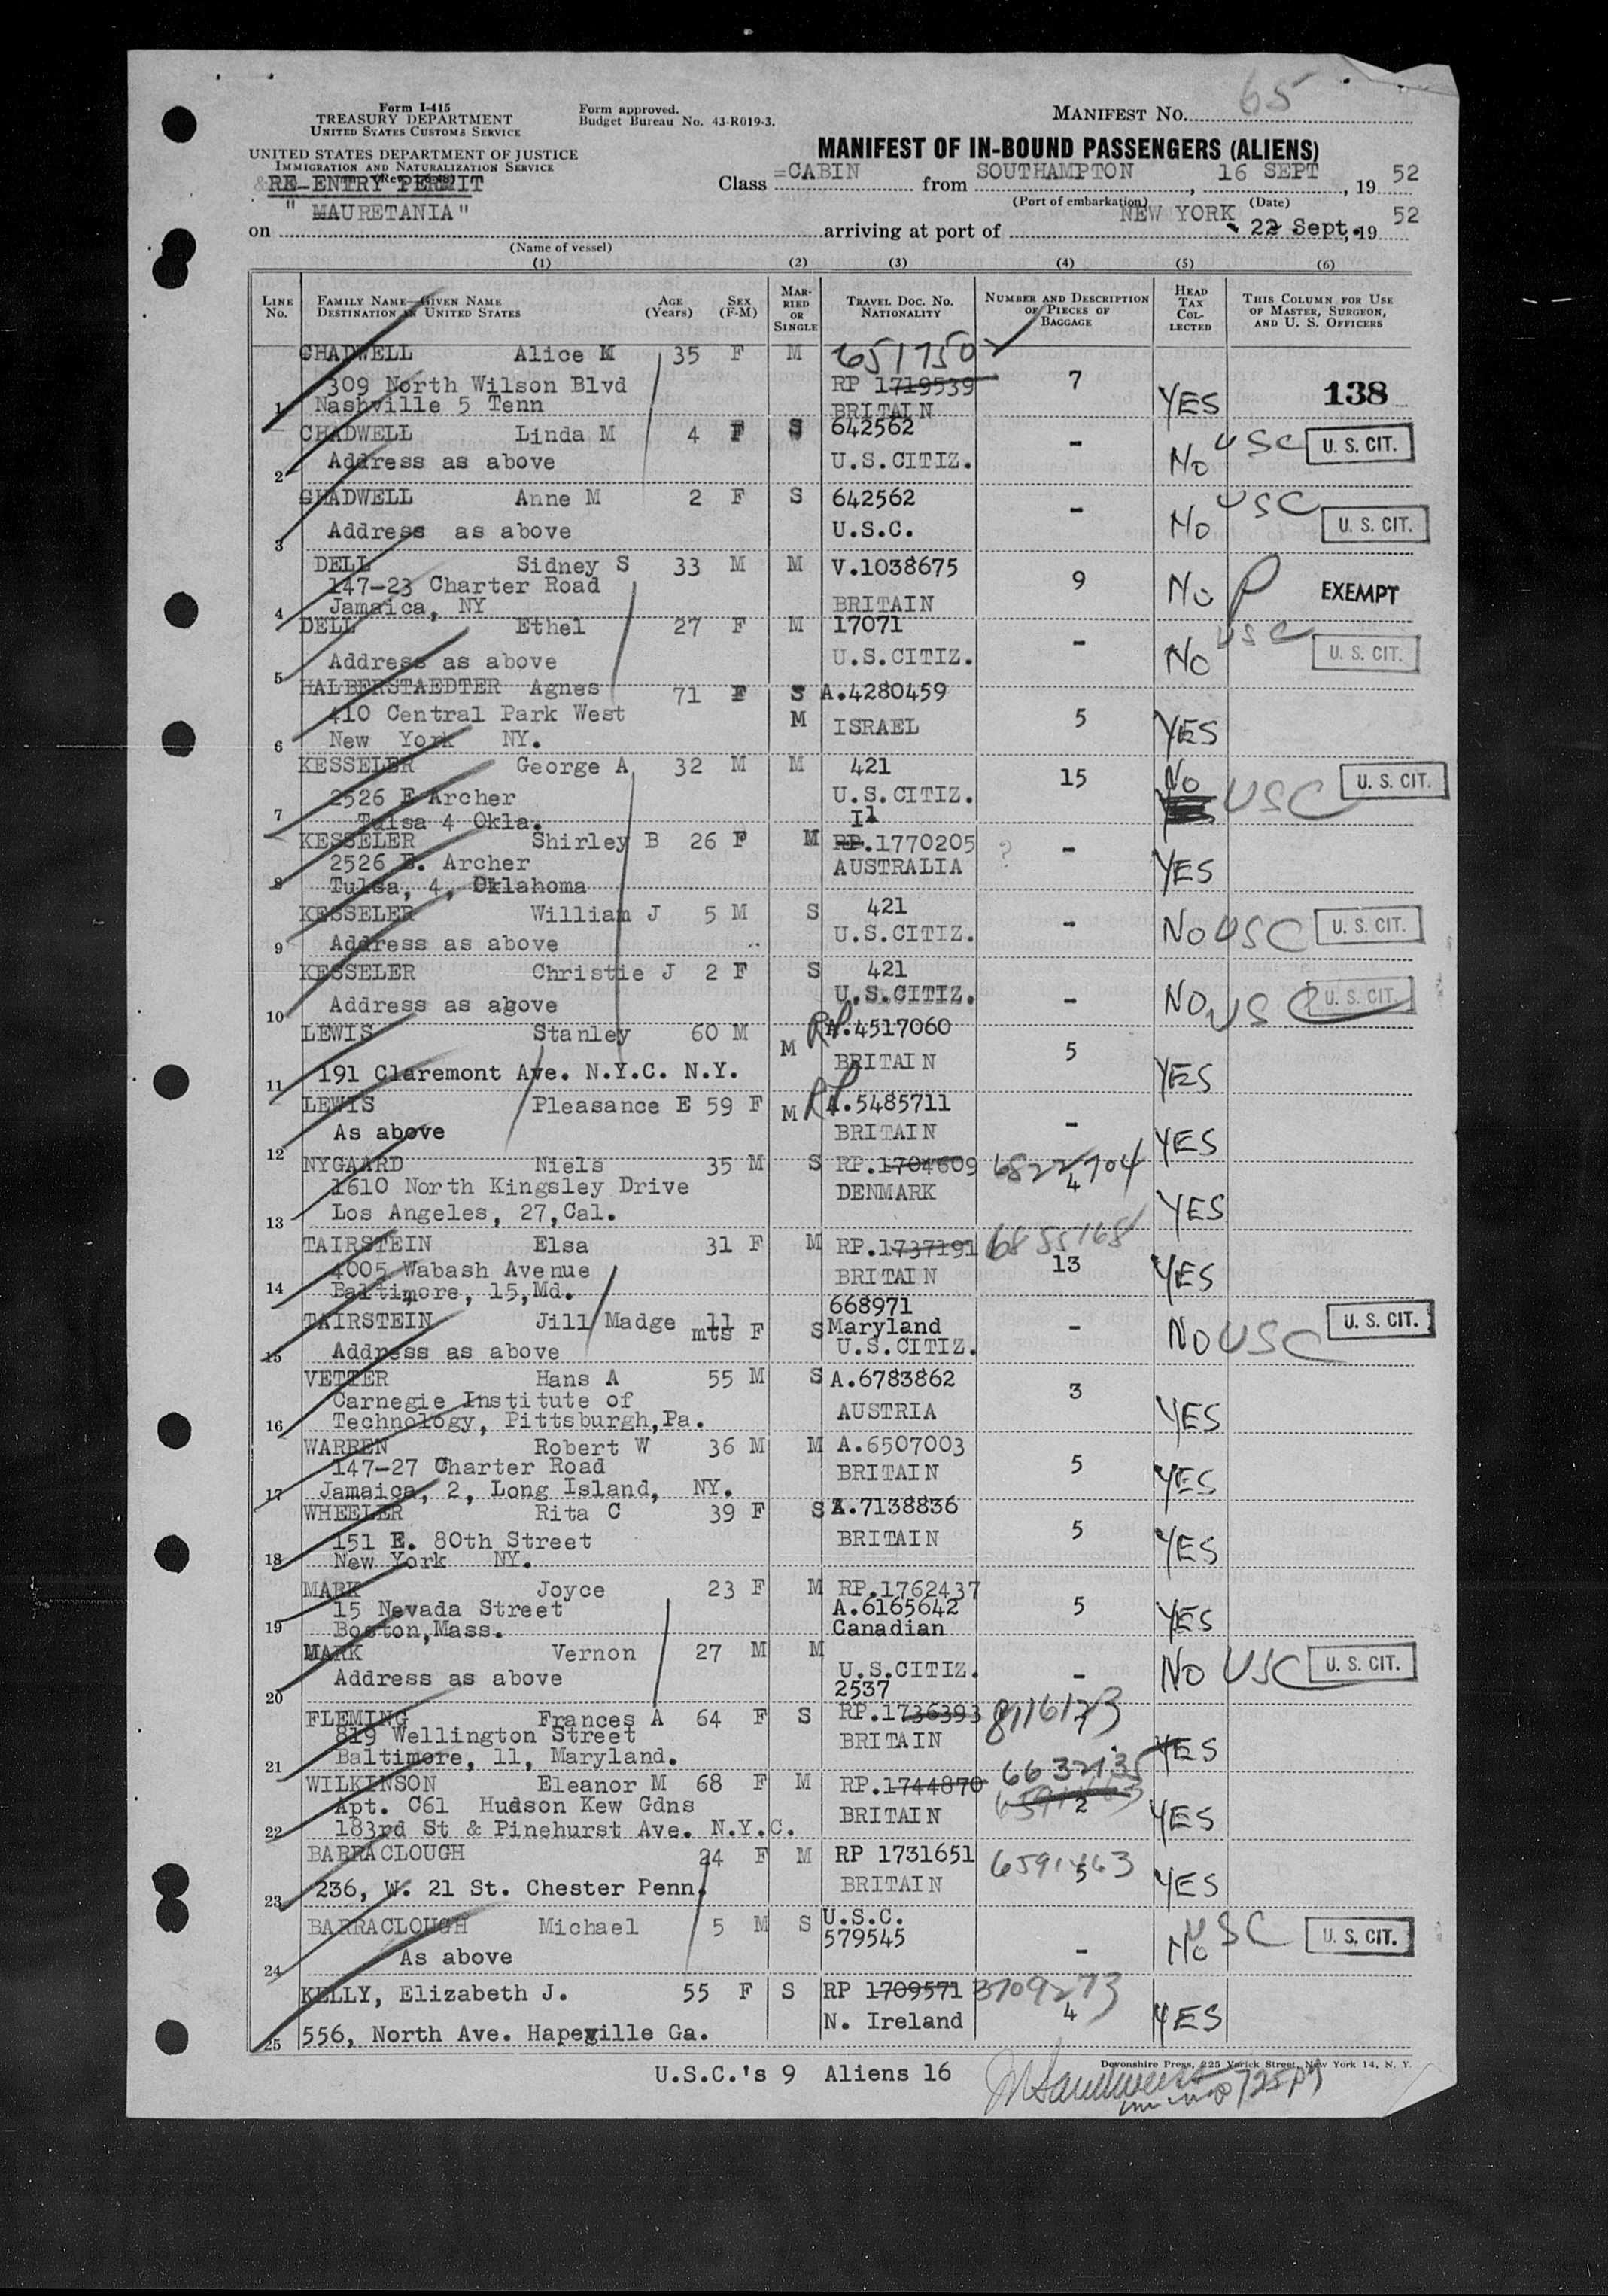 65
Form I-415
TREASURY DEPARTMENT
UNITED STATES CUSTOMS SERVICE
Form approved.
Budget Bureau No. 43-R019-3.
MANIFEST No.
UNITED STATES DEPARTMENT OF JUSTICE
IMMIGRATION AND NATURALIZATION SERVICE
MANIFEST OF IN-BOUND PASSENGERS (ALIENS)
RE-ENTRY PERMIT
Class =CABIN from SOUTHAMPTON, 16 SEPT, 19 52
(Port of embarkation) (Date)
on "MAURETANIA" arriving at port of NEW YORK 22 Sept., 19 52
(Name of vessel)
(1) (2) (3) (4) (5) (6)
LINE No. FAMILY NAME—GIVEN NAME DESTINATION IN UNITED STATES AGE (Years) SEX (F-M) MARRIED OR SINGLE TRAVEL DOC. No. NATIONALITY NUMBER AND DESCRIPTION OF PIECES OF BAGGAGE HEAD TAX COLLECTED THIS COLUMN FOR USE OF MASTER, SURGEON, AND U. S. OFFICERS
CHADWELL Alice M 35 F M 6517502
309 North Wilson Blvd RP 1719539 7
1 Nashville 5 Tenn BRITAIN YES 138
CHADWELL Linda M 4 F S 642562
2 Address as above U.S.CITIZ. - No USC U. S. CIT.
CHADWELL Anne M 2 F S 642562
3 Address as above U.S.C. - No USC U. S. CIT.
DELL Sidney S 33 M M V.1038675
147-23 Charter Road 9 No P EXEMPT
4 Jamaica, NY BRITAIN
DELL Ethel 27 F M 17071
5 Address as above U.S.CITIZ. - No USC U. S. CIT.
HALBERSTAEDTER Agnes 71 F S A.4280459
410 Central Park West M ISRAEL 5 YES
6 New York NY.
KESSELER George A 32 M M 421 15 No
7 2526 E Archer U.S.CITIZ. USC U. S. CIT.
Tulsa 4 Okla. I1
KESSELER Shirley B 26 F M RP.1770205 ? -
8 2526 E. Archer AUSTRALIA YES
Tulsa, 4, Oklahoma
KESSELER William J 5 M S 421
9 Address as above U.S.CITIZ. - No USC U. S. CIT.
KESSELER Christie J 2 F S 421
10 Address as agove U.S.CITIZ. - NO USC U. S. CIT.
LEWIS Stanley 60 M M RP A.4517060
11 191 Claremont Ave. N.Y.C. N.Y. BRITAIN 5 YES
LEWIS Pleasance E 59 F M RP A.5485711
12 As above BRITAIN - YES
NYGAARD Niels 35 M S RP.1704609 6822704
1610 North Kingsley Drive DENMARK 4
13 Los Angeles, 27,Cal. YES
TAIRSTEIN Elsa 31 F M RP.1737191 6855168
4005 Wabash Avenue BRITAIN 13 YES
14 Baltimore, 15,Md.
668971
TAIRSTEIN Jill Madge 11 mts F S Maryland - NO USC U. S. CIT.
15 Address as above U.S.CITIZ.
VETTER Hans A 55 M S A.6783862
Carnegie Institute of AUSTRIA 3
16 Technology, Pittsburgh,Pa. YES
WARREN Robert W 36 M M A.6507003
147-27 Charter Road BRITAIN 5 YES
17 Jamaica, 2, Long Island, NY.
WHEELER Rita C 39 F S A.7138836
151 E. 80th Street BRITAIN 5 YES
18 New York NY.
MARK Joyce 23 F M RP.1762437
15 Nevada Street A.6165642 5 YES
19 Boston,Mass. Canadian
MARK Vernon 27 M M
20 Address as above U.S.CITIZ. - NO USC U. S. CIT.
2537
FLEMING Frances A 64 F S RP.1736393 8116173
819 Wellington Street BRITAIN
21 Baltimore, 11, Maryland. YES
WILKINSON Eleanor M 68 F M RP.1744870 6632135
Apt. C61 Hudson Kew Gdns BRITAIN 2 YES
22 183rd St & Pinehurst Ave. N.Y.C.
BARRACLOUGH 24 F M RP 1731651 6591463
23 236, W. 21 St. Chester Penn. BRITAIN 5 YES
BARRACLOUGH Michael 5 M S U.S.C. 579545
24 As above - No USC U. S. CIT.
KELLY, Elizabeth J. 55 F S RP 1709571 3709273
25 556, North Ave. Hapeville Ga. N. Ireland 4 YES
U.S.C.'s 9 Aliens 16
Devonshire Press, 225 Varick Street, New York 14, N. Y.